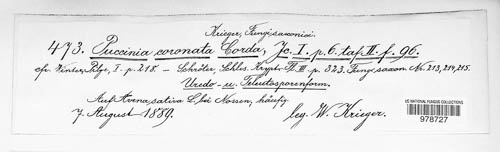 Krieger, Fungi saxonici.
473. Puccinia coronata Corda, Jc. I. p. 6. taf. II. f. 96.
cfr. Winter, Pilze, I. p. 218. – Schröter, Schles. Krypt. Fl. III. p. 323. Fungi saxon. No. 213, 214, 215.
Uredo- u. Teleutosporenform.
Auf Avena sativa L. bei Nossen, häufig
7. August 1889.
leg. W. Krieger.
US NATIONAL FUNGUS COLLECTIONS
978727